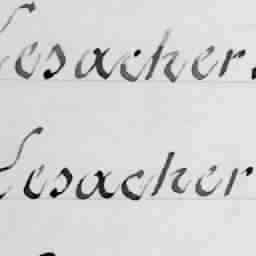 Lesacher.
Lesacher